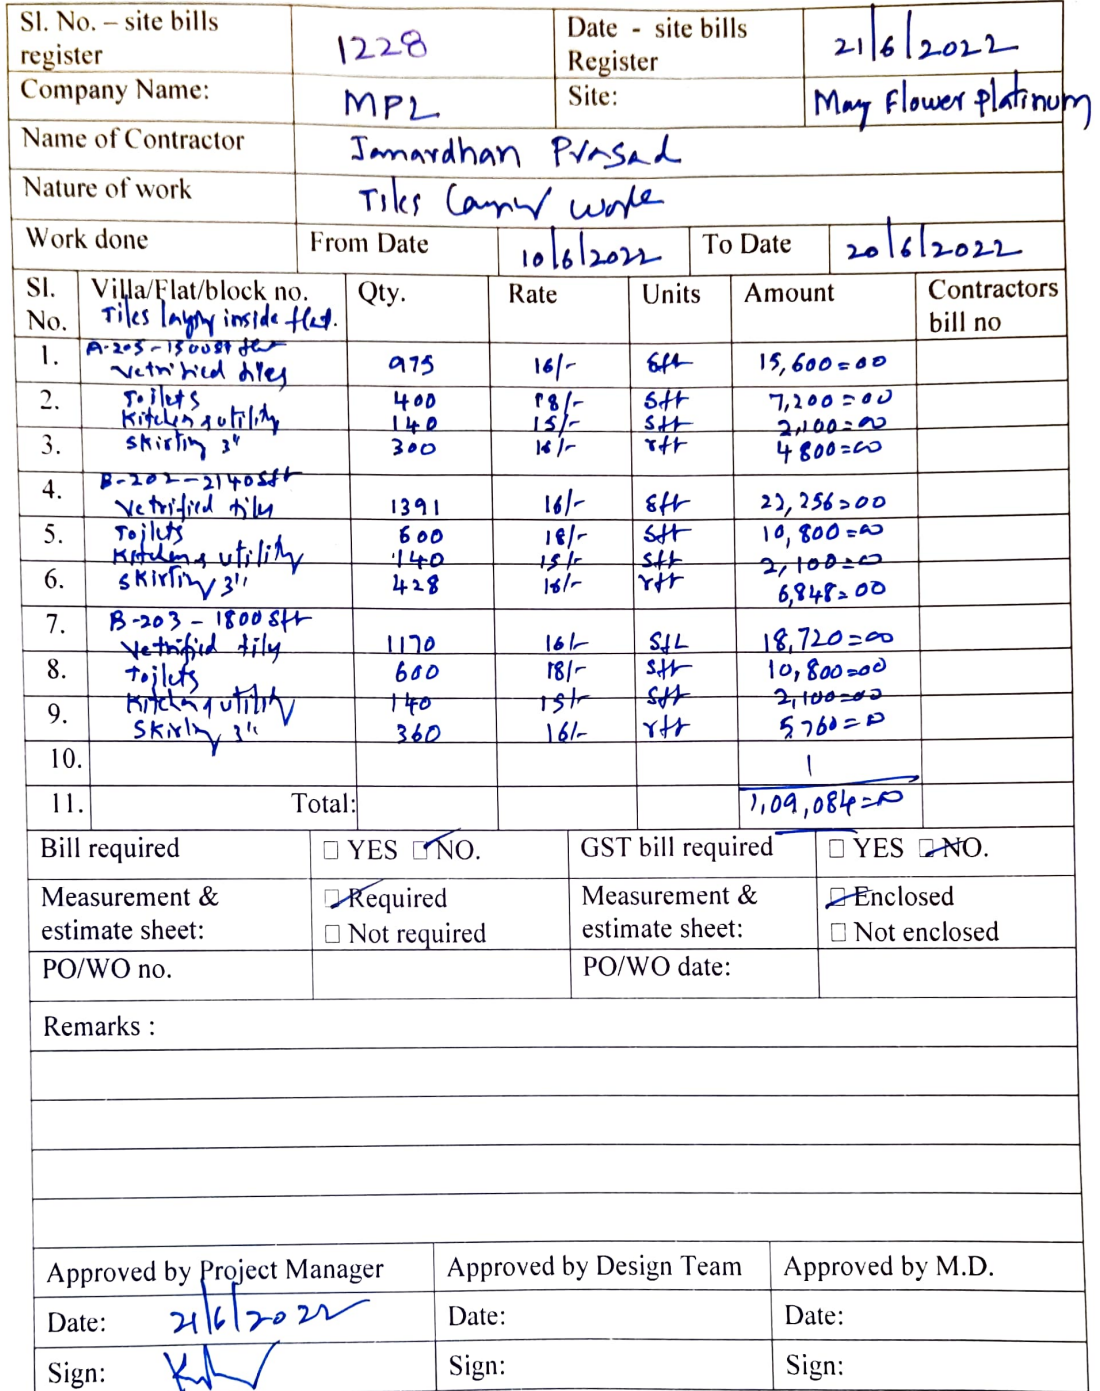 Sl. No. – site bills register 1228 Date - site bills Register 21/6/2022
Company Name: MPL Site: May Flower Platinum
Name of Contractor Janardhan Prasad
Nature of work Tiles work
Work done From Date 10/6/2022 To Date 20/6/2022
Sl. No. Villa/Flat/block no. Qty. Rate Units Amount Contractors bill no
Tiles laying inside flat.
1. A-205-1500sft
Vetrified tiles 975 16/- sft 15,600=00
2. Toilets 400 18/- sft 7,200=00
Kitchen & utility 140 15/- sft 2,100=00
3. skirting 3" 300 16/- rft 4800=00
4. B-202-2140sft
Vetrified tiles 1391 16/- sft 22,256=00
5. Toilets 600 18/- sft 10,800=00
Kitchen & utility 140 15/- sft 2,100=00
6. skirting 3" 428 16/- rft 6,848=00
7. B-203-1800sft
Vetrified tiles 1170 16/- sft 18,720=00
8. Toilets 600 18/- sft 10,800=00
Kitchen & utility 140 15/- sft 2,100=00
9. Skirting 3" 360 16/- rft 5,760=00
10.
11. Total: 1,09,084=00
Bill required YES NO. GST bill required YES NO.
Measurement & estimate sheet: Required Measurement & estimate sheet: Enclosed
Not required Not enclosed
PO/WO no. PO/WO date:
Remarks :
Approved by Project Manager Approved by Design Team Approved by M.D.
Date: 21/6/2022 Date: Date:
Sign: Sign: Sign: